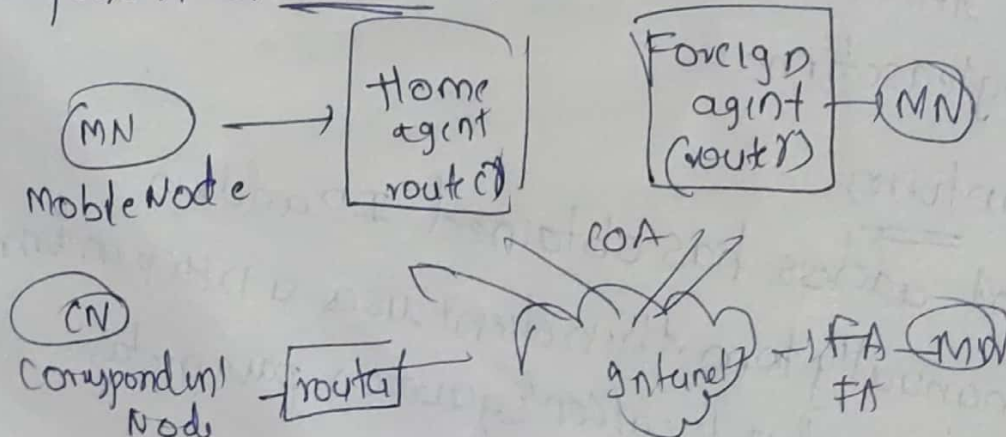 MN
Mobile Node
Home
agent
router
Foreign
agent
(router)
MN
COA
CN
Correspondent
Node
router
Internet
FA
MN
FA